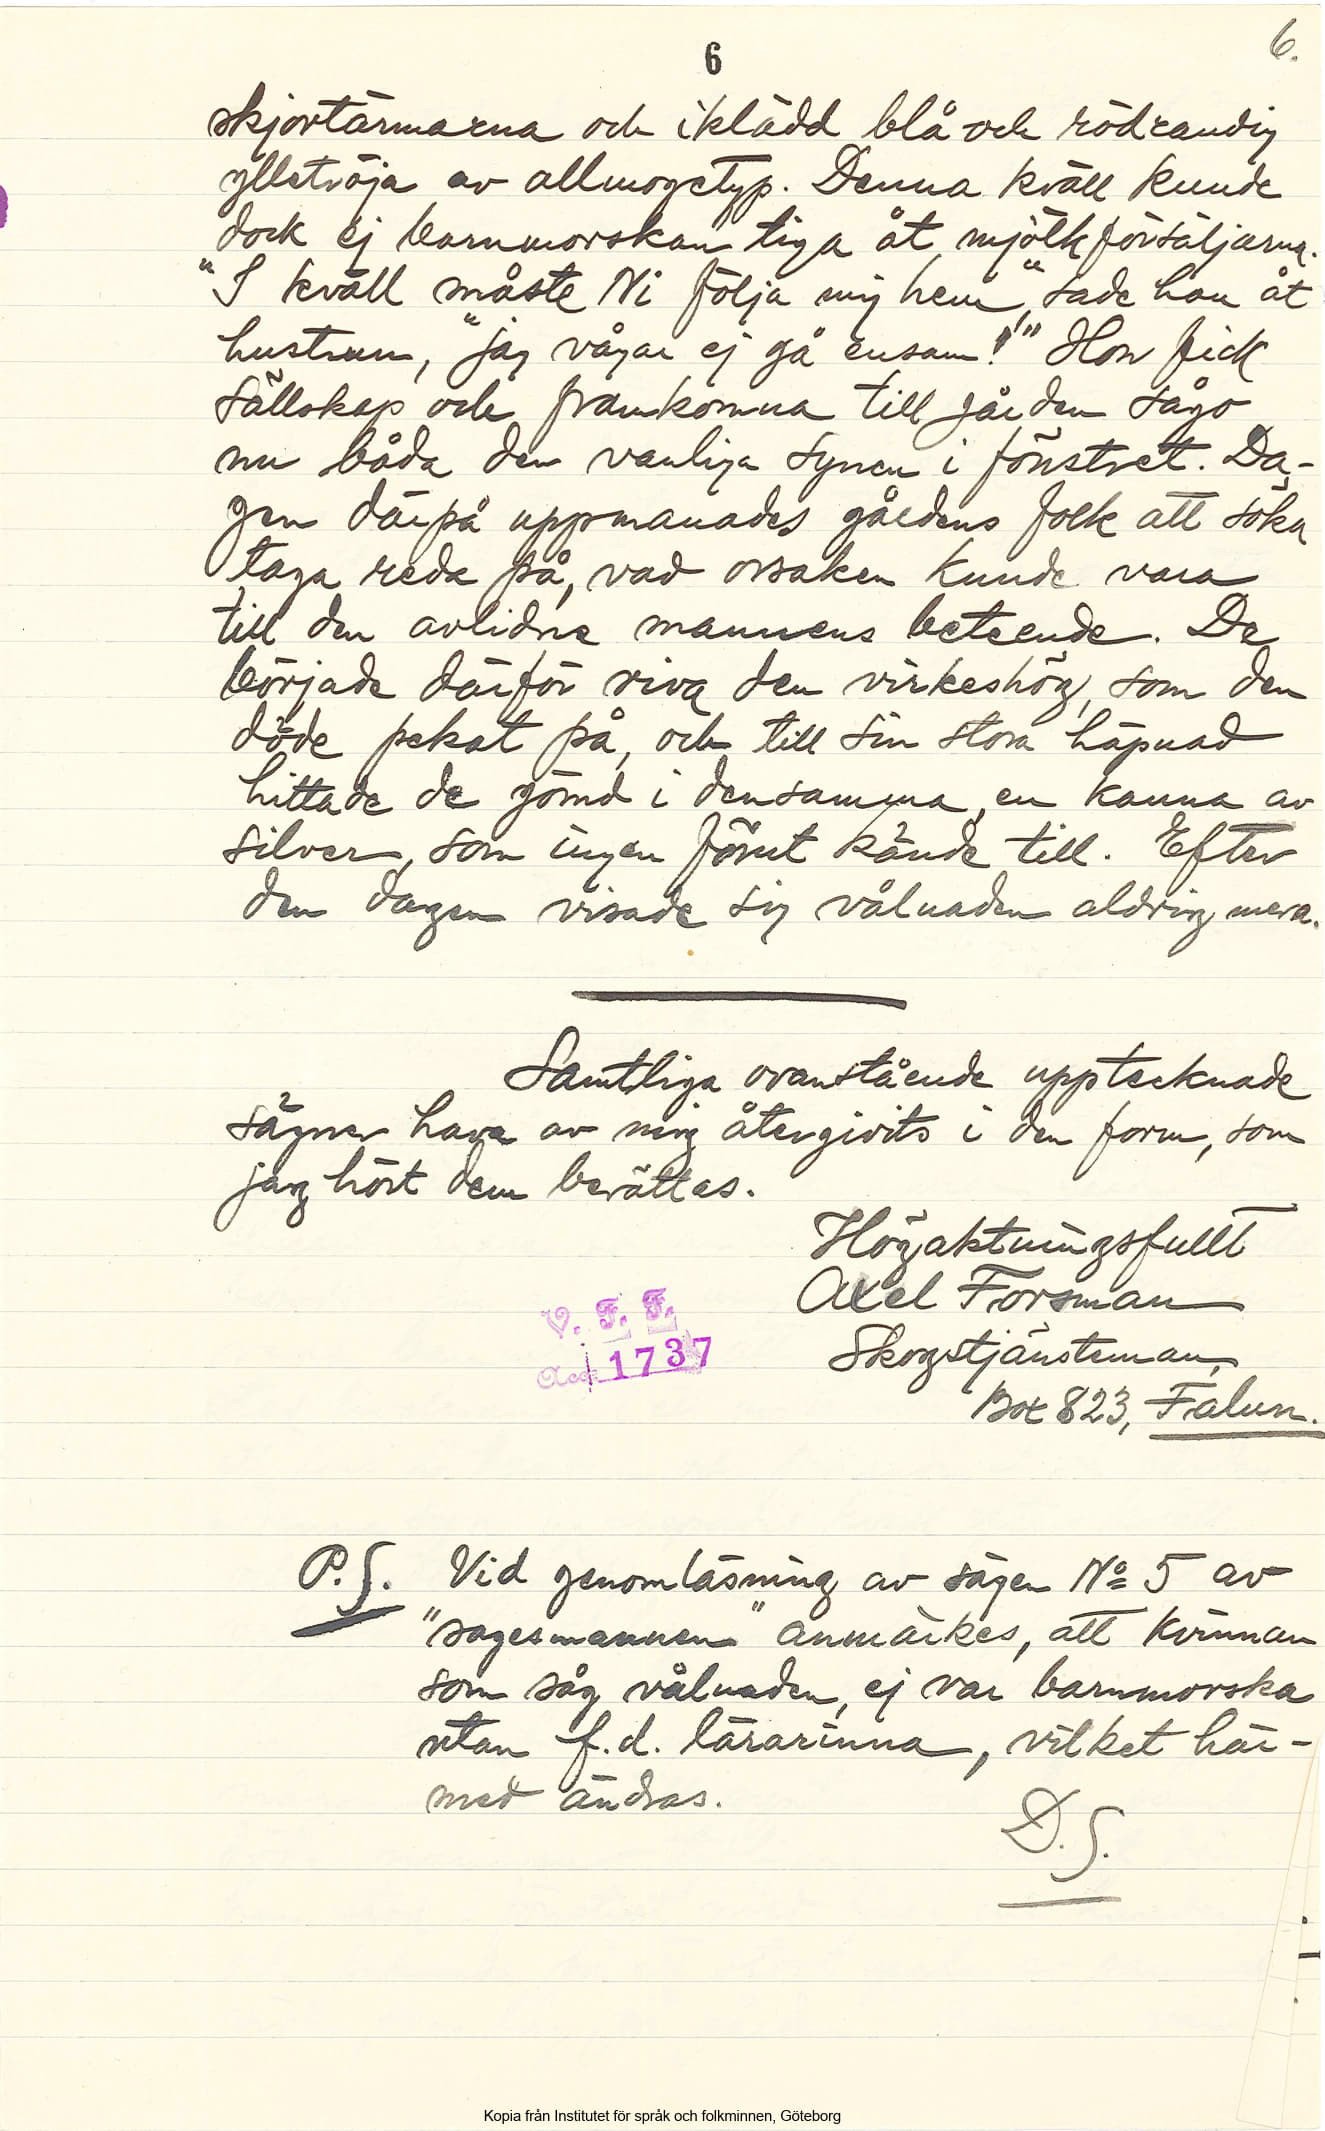 6
6.
skjortärmarna och iklädd blå och rödrandig
ylletröja av allmogetyp. Denna kväll kunde
dock ej barnmorskan tiga åt mjölkförsäljarna.
"I kväll måste Ni följa mig hem", sade hon åt
hustrun, "jag vågar ej gå ensam!" Hon fick
sällskap och framkomna till gården sågo
nu båda den vanliga synen i fönstret. Da-
gen därpå uppmanades gårdens folk att söka
taga reda på, vad orsaken kunde vara
till den avlidne mannens beteende. De
började därför riva den virkeshög, som den
döde pekat på, och till sin stora häpnad
hittade de gömd i densamma, en kanna av
silver, som ingen förut kände till. Efter
den dagen visade sig vålnaden aldrig mera.
Samtliga ovanstående upptecknade
sägner hava av mig återgivits i den form, som
jag hört dem berättas.
Högaktningsfullt
Axel Forsman
Skogstjänsteman,
Box 823, Falun.
V. F. F.
Acc. 1737
P.S. Vid genomläsning av sägen No 5 av
"sagesmannen" anmärkes, att kvinnan
som såg vålnaden, ej var barnmorska
utan f.d. lärarinna, vilket här-
med ändras.
D.S.
Kopia från Institutet för språk och folkminnen, Göteborg